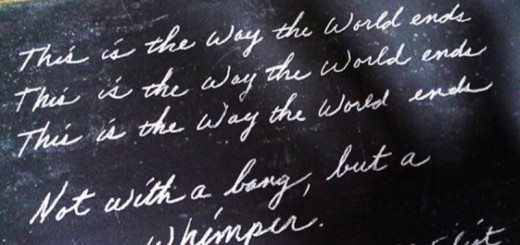 This is the way the World ends
This is the way the World ends
This is the Way the World ends
Not with a bang, but a
Whimper.